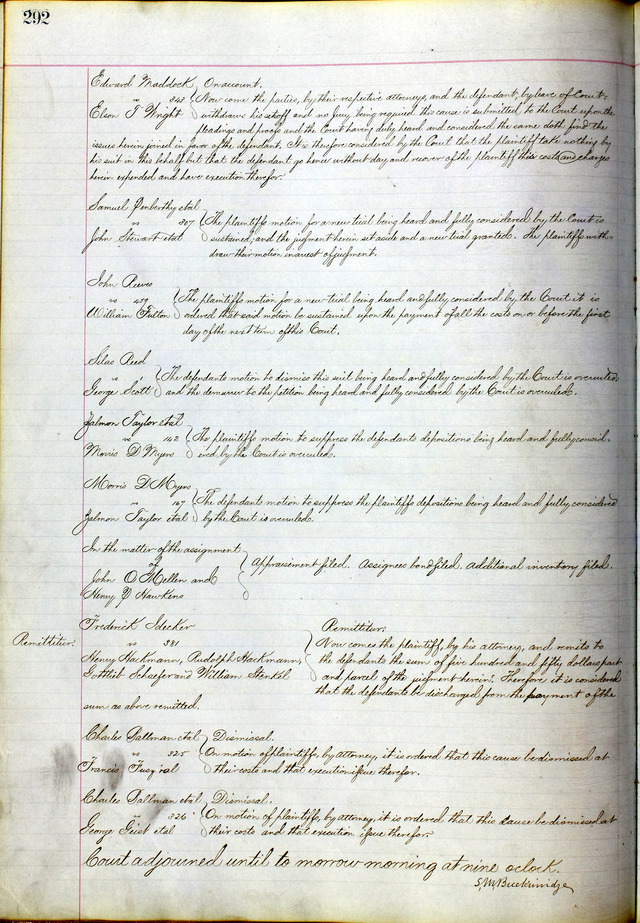 292
Edward Maddock, On account.
vs 343 Now come the parties, by their respective attorneys, and the defendant, by leave of Court,
Elson T Wright withdraws his setoff and no Jury being required this cause is submitted to the Court upon the
pleadings and proofs and the Court having duly heard and considered the same doth find the
issues herein joined in favor of the defendant. It is therefore considered by the Court that the plaintiff take nothing by
his suit in this behalf but that the defendant go hence without day and recover of the plaintiff his costs and charges
herein expended and have execution therefor.
Samuel Penberthy etal
vs 307 The plaintiffs motion for a new trial being heard and fully considered by the Court is
John Stewart etal sustained, and the judgment herein set aside and a new trial granted. The plaintiffs with-
draw their motion in arrest of judgment.
John Reeves
vs 459 The plaintiffs motion for a new trial being heard and fully considered by the Court it is
William Fulton ordered that said motion be sustained upon the payment of all the costs on or before the first
day of the next term of this Court.
Silas Reed
vs The defendants motion to dismiss this suit being heard and fully considered by the Court is overruled,
George Scott and the demurrer to the petition being heard and fully considered by the Court is overruled.
Zalmon Taylor etal
vs 142 The plaintiffs motion to suppress the defendants depositions being heard and fully consid-
Morris D Myers ered by the Court is overruled.
Morris D Myers
vs 167 The defendants motion to suppress the plaintiffs depositions being heard and fully considered
Zalmon Taylor etal by the Court is overruled.
In the matter of the assignment
of Appraisement filed. Assignees bond filed. Additional inventory filed.
John O Mellen and
Henry D Hawkens
Frederick Idecker Remittitur.
Remittitur. vs 381 Now comes the plaintiff, by his attorney, and remits to
Henry Hackmann, Rudolph Hackmann, the defendants the sum of five hundred and fifty dollars part
Gottlieb Schaefer and William Stenkel and parcel of the judgment herein. Therefore it is considered
that the defendants be discharged from the payment of the
sum as above remitted.
Charles Pallman etal Dismissal.
vs 325 On motion of plaintiffs, by attorney, it is ordered that this cause be dismissed at
Francis etal their costs and that execution issue therefor.
Charles Pallman etal Dismissal.
vs 326 On motion of plaintiffs, by attorney, it is ordered that this cause be dismissed at
George Geist etal their costs and that execution issue therefor.
Court adjourned until to morrow morning at nine oclock.
S. M. Breckinridge